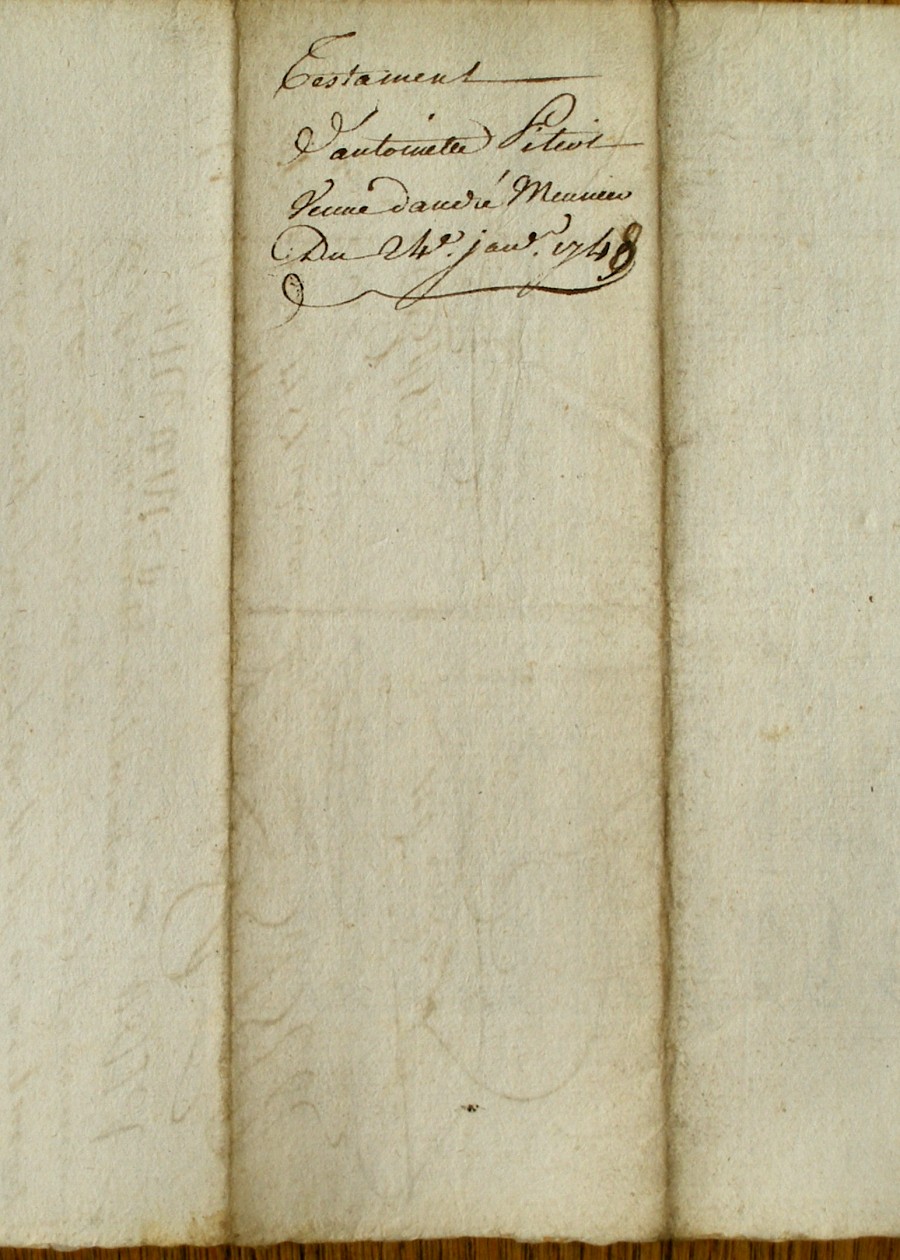 Testament
D'antoinette Pitiot
Veuve d'andré Meunier
Du 24e. janvr. 1748